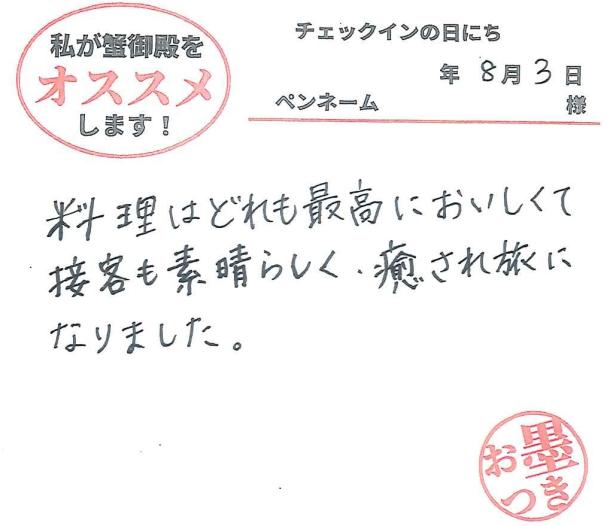 私が蟹御殿を
オススメ
します！
チェックインの日にち
年 8月3日
ペンネーム 様
料理はどれも最高においしくて
接客も素晴らしく、癒され旅に
なりました。
お墨
つき